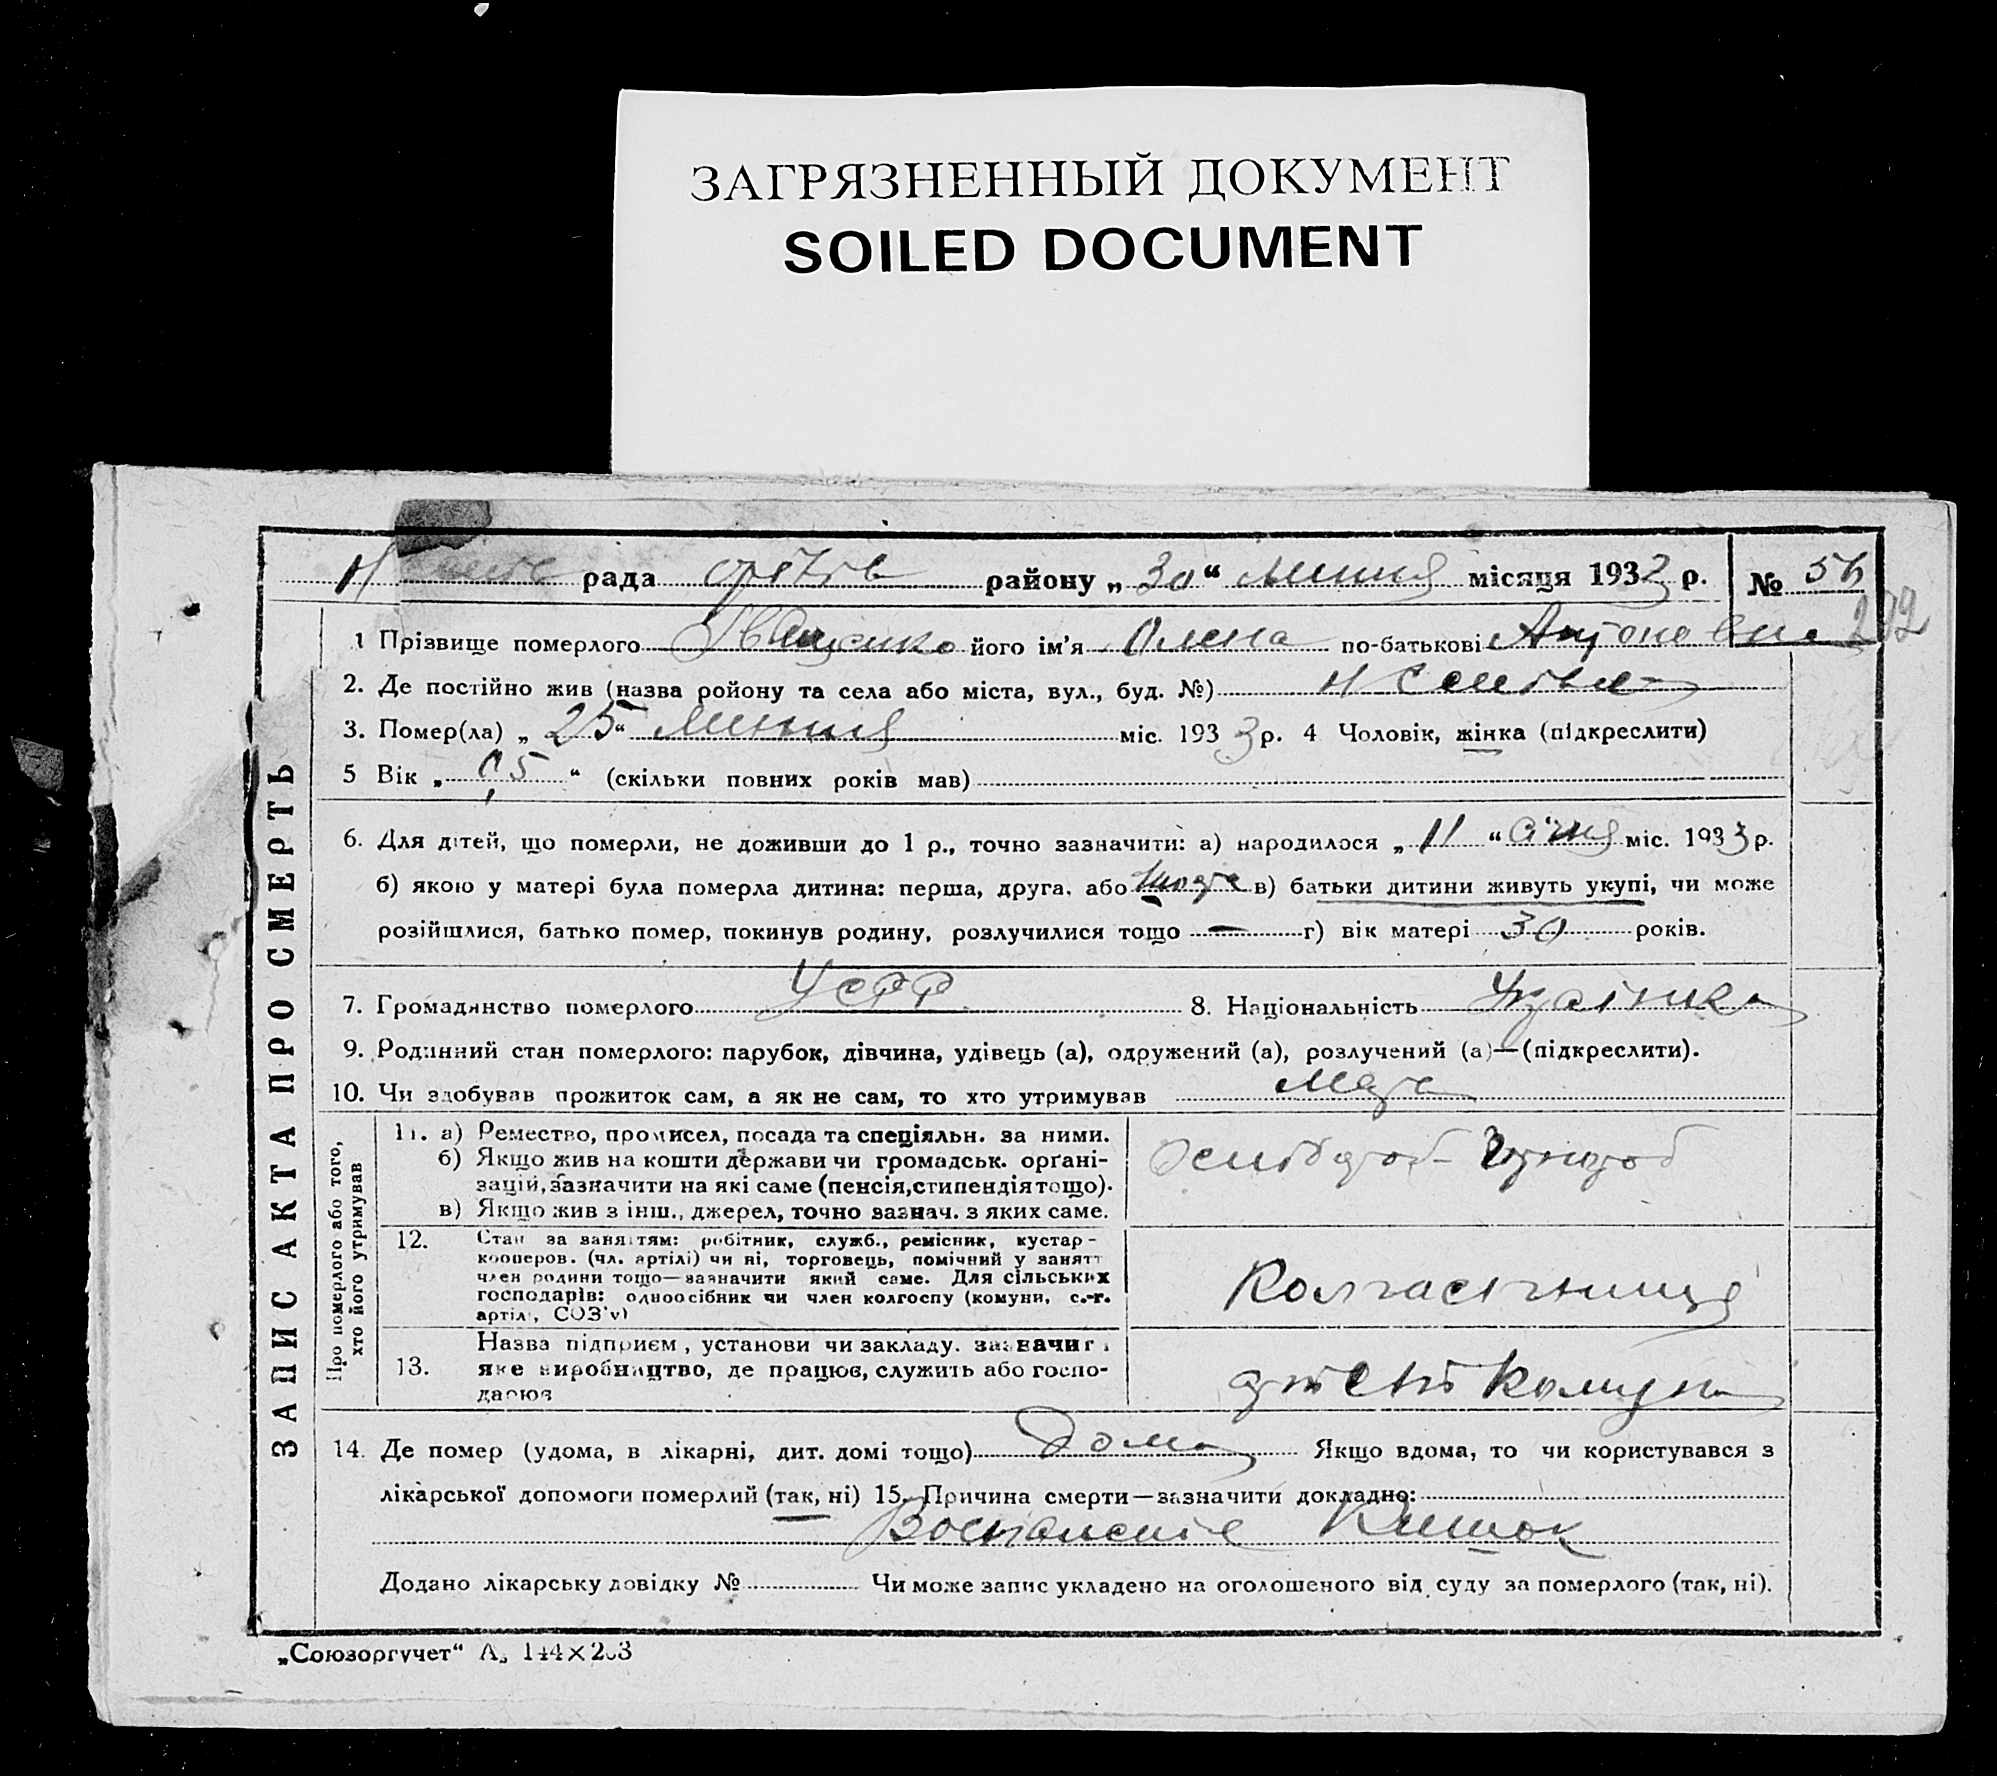 ЗАГРЯЗНЕННЫЙ ДОКУМЕНТ
SOILED DOCUMENT
рада району „30“ липня місяця 1933 р. № 56
292
1 Прізвище померлого його ім'я Олена по-батькові Антоновна
2. Де постійно жив (назва ройону та села або міста, вул., буд. №)
3. Помер(ла) „25“ липня міс. 1933 р. 4 Чоловік, жінка (підкреслити)
5 Вік „ “ (скільки повних років мав)
6. Для дітей, що померли, не доживши до 1 р., точно зазначити: а) народилося „11“ січня міс. 1933 р.
б) якою у матері була померла дитина: перша, друга, або в) батьки дитини живуть укупі, чи може
розійшлися, батько помер, покинув родину, розлучилися тощо — г) вік матері 30 років.
7. Громадянство померлого УСРР 8. Національність Українка
9. Родинний стан померлого: парубок, дівчина, удівець (а), одружений (а), розлучений (а)—(підкреслити).
10. Чи здобував прожиток сам, а як не сам, то хто утримував мати
ЗАПИС АКТА ПРО СМЕРТЬ
Про померлого або того, хто його утримував
11. а) Ремество, промисел, посада та спеціяльн. за ними.
б) Якщо жив на кошти держави чи громадськ. органі-
зацій, зазначити на які саме (пенсія, стипендія тощо).
в) Якщо жив з інш., джерел, точно зазнач. з яких саме.
12. Стан за заняттям: робітник, служб., ремісник, кустар-
кооперов. (чл. артілі) чи ні, торговець, помічний у занятт
член родини тощо—зазначити який саме. Для сільських
господарів: одноосібник чи член колгоспу (комуни, с.-г.
артілі, СОЗ'у)
Колгоспниця
13. Назва підприєм, установи чи закладу. зазначит
яке виробництво, де працює, служить або госпо-
дарює
14. Де помер (удома, в лікарні, дит. домі тощо) дома Якщо вдома, то чи користувався з
лікарської допомоги померлий (так, ні) 15. Причина смерти—зазначити докладно:
Воспаление Кишок
Додано лікарську довідку № Чи може запис укладено на оголошеного від суду за померлого (так, ні).
„Союзоргучет“